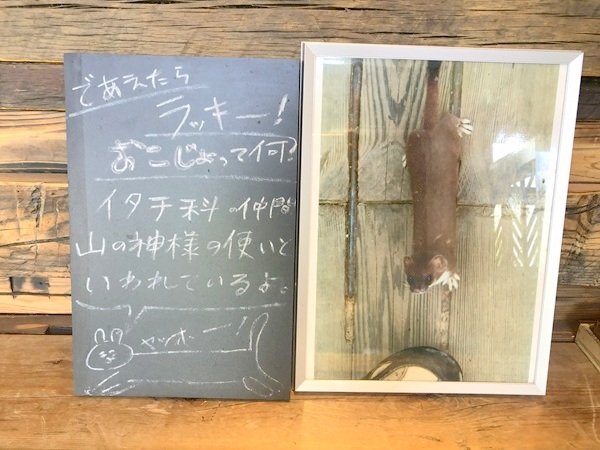 であえたら
ラッキー!
おこじょって何?
イタチ科の仲間
山の神様の使いと
いわれているよ。
ヤッホー!